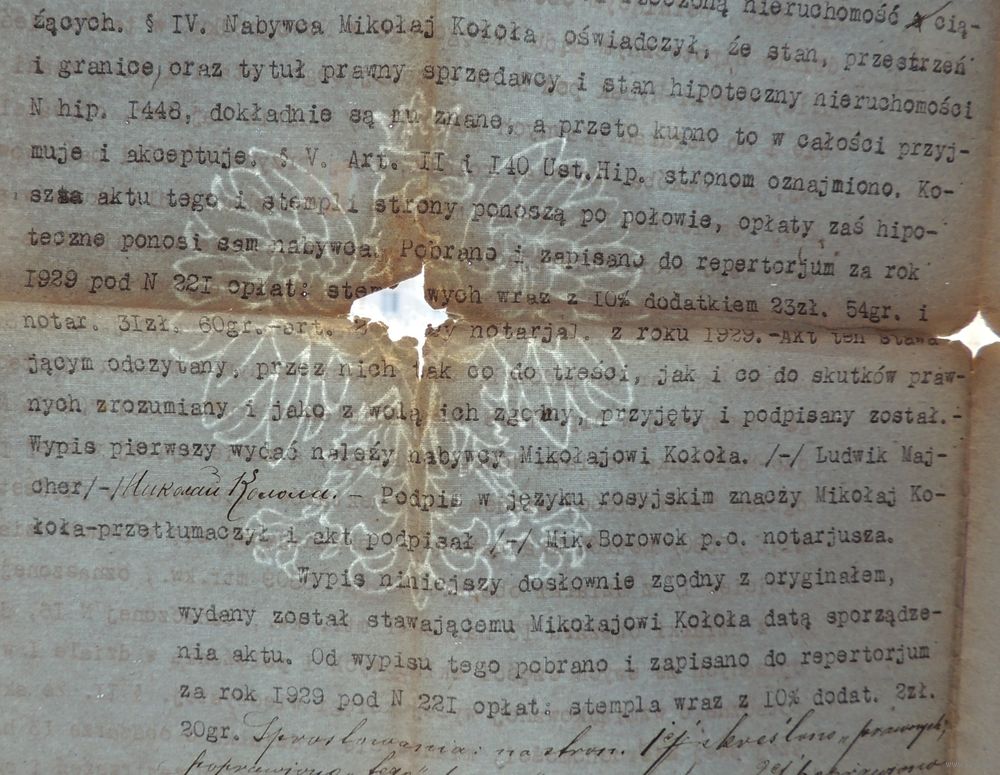 rzeczoną nieruchomość cią-
żących. § IV. Nabywca Mikołaj Kołoła oświadczył, że stan, przestrzeń
i granice, oraz tytuł prawny sprzedawcy i stan hipoteczny nieruchomości
N hip. I448, dokładnie są mu znane, a przeto kupno to w całości przyj-
muje i akceptuje. § V. Art. II i I40 Ust.Hip. stronom oznajmiono. Ko-
szta aktu tego i stempli strony ponoszą po połowie, opłaty zaś hipo-
teczne ponosi sam nabywca. Pobrano i zapisano do repertorjum za rok
I929 pod N 22I opłat: wych wraz z I0% dodatkiem 23zł. 54gr. i
notar. 3Izł. 60gr.-art. notarjal. z roku I929.-Akt ten stawa
jącym odczytany, przez nich tak co do treści, jak i co do skutków praw-
nych zrozumiany i jako z wolą ich zgodny, przyjęty i podpisany został.-
Wypis pierwszy wydać należy nabywcy Mikołajowi Kołoła. /-/ Ludwik Maj-
cher/-/Николай Колола. - Podpis w języku rosyjskim znaczy Mikołaj Ko-
łoła-przetłumaczył i akt podpisał /-/ Mik.Borowok p.o. notarjusza.
Wypis niniejszy dosłownie zgodny z oryginałem,
wydany został stawającemu Mikołajowi Kołoła datą sporządze-
nia aktu. Od wypisu tego pobrano i zapisano do repertorjum
za rok I929 pod N 22I opłat: stempla wraz z I0% dodat. 2zł.
20gr. Sprostowania: na stron. 1ej skreślono „prawnych”,
poprawiono „tego”